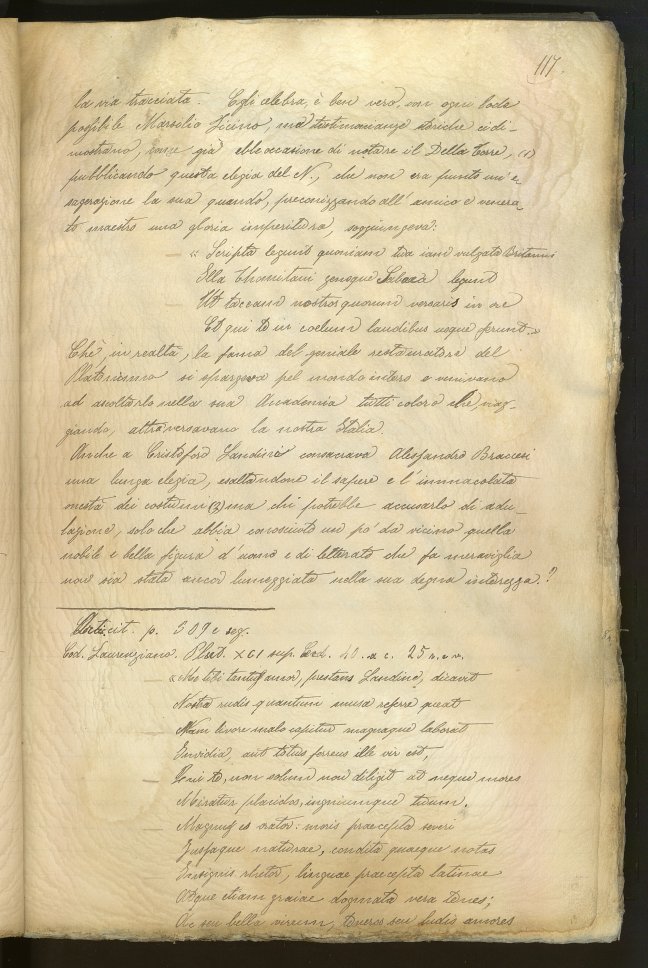 117.
la via tracciata. Egli celebra, è ben vero, con ogni lode
possibile Marsilio Ficino, ma testimonianze storiche ci di-
mostrano, come già ebbe occasione di notare il Della Torre, (1)
pubblicando questa elegia del N., che non era punto un'e-
sagerazione la sua quando, preconizzando all'amico e venera-
to maestro una gloria imperitura, soggiungeva:
« Scripta legunt quoniam tua iam vulgata Britanni
Illa Thomitani gensque Sabaea legunt
Ut taceam nostros quorum versaris in ore
Et qui te in coelum laudibus usque ferunt.»
Chè, in realtà, la fama del geniale restauratore del
Platonismo si spargeva pel mondo intero e venivano
ad ascoltarlo nella sua Accademia tutti coloro che, viag-
giando, attraversavano la nostra Italia.
Anche a Cristoforo Landino consacrava Alessandro Braccesi
una lunga elegia, esaltandone il sapere e l'immacolata
onestà dei costumi (2) ma chi potrebbe accusarlo di adu-
lazione, solo che abbia conosciuto un po' da vicino quella
nobile e bella figura d'uomo e di letterato che fa meraviglia
non sia stata ancor lumeggiata nella sua degna interezza?
cit. p. 809 e seg.
Cod. Laurenziano. Plut. XCI sup. Cod. 40. a c. 25 r. e v.
« tibi tantus amor, prestans Landine, dicavit
Nostra rudis quantum musa referre queat
Nam livore malo capitur magnaque laborat
Invidia, aut totus ferreus ille vir est,
Qui te, non solum non diligit at neque mores
Miratur placidos, ingeniumque tuum.
Magnus es orator: moris praecepta severi
Jusque naturae, condita quaeque notas
Insignis rhetor, linguae praecepta latinae
Atque etiam graiae dogmata vera tenes;
Ac seu bella virum, teneros seu ludis amores